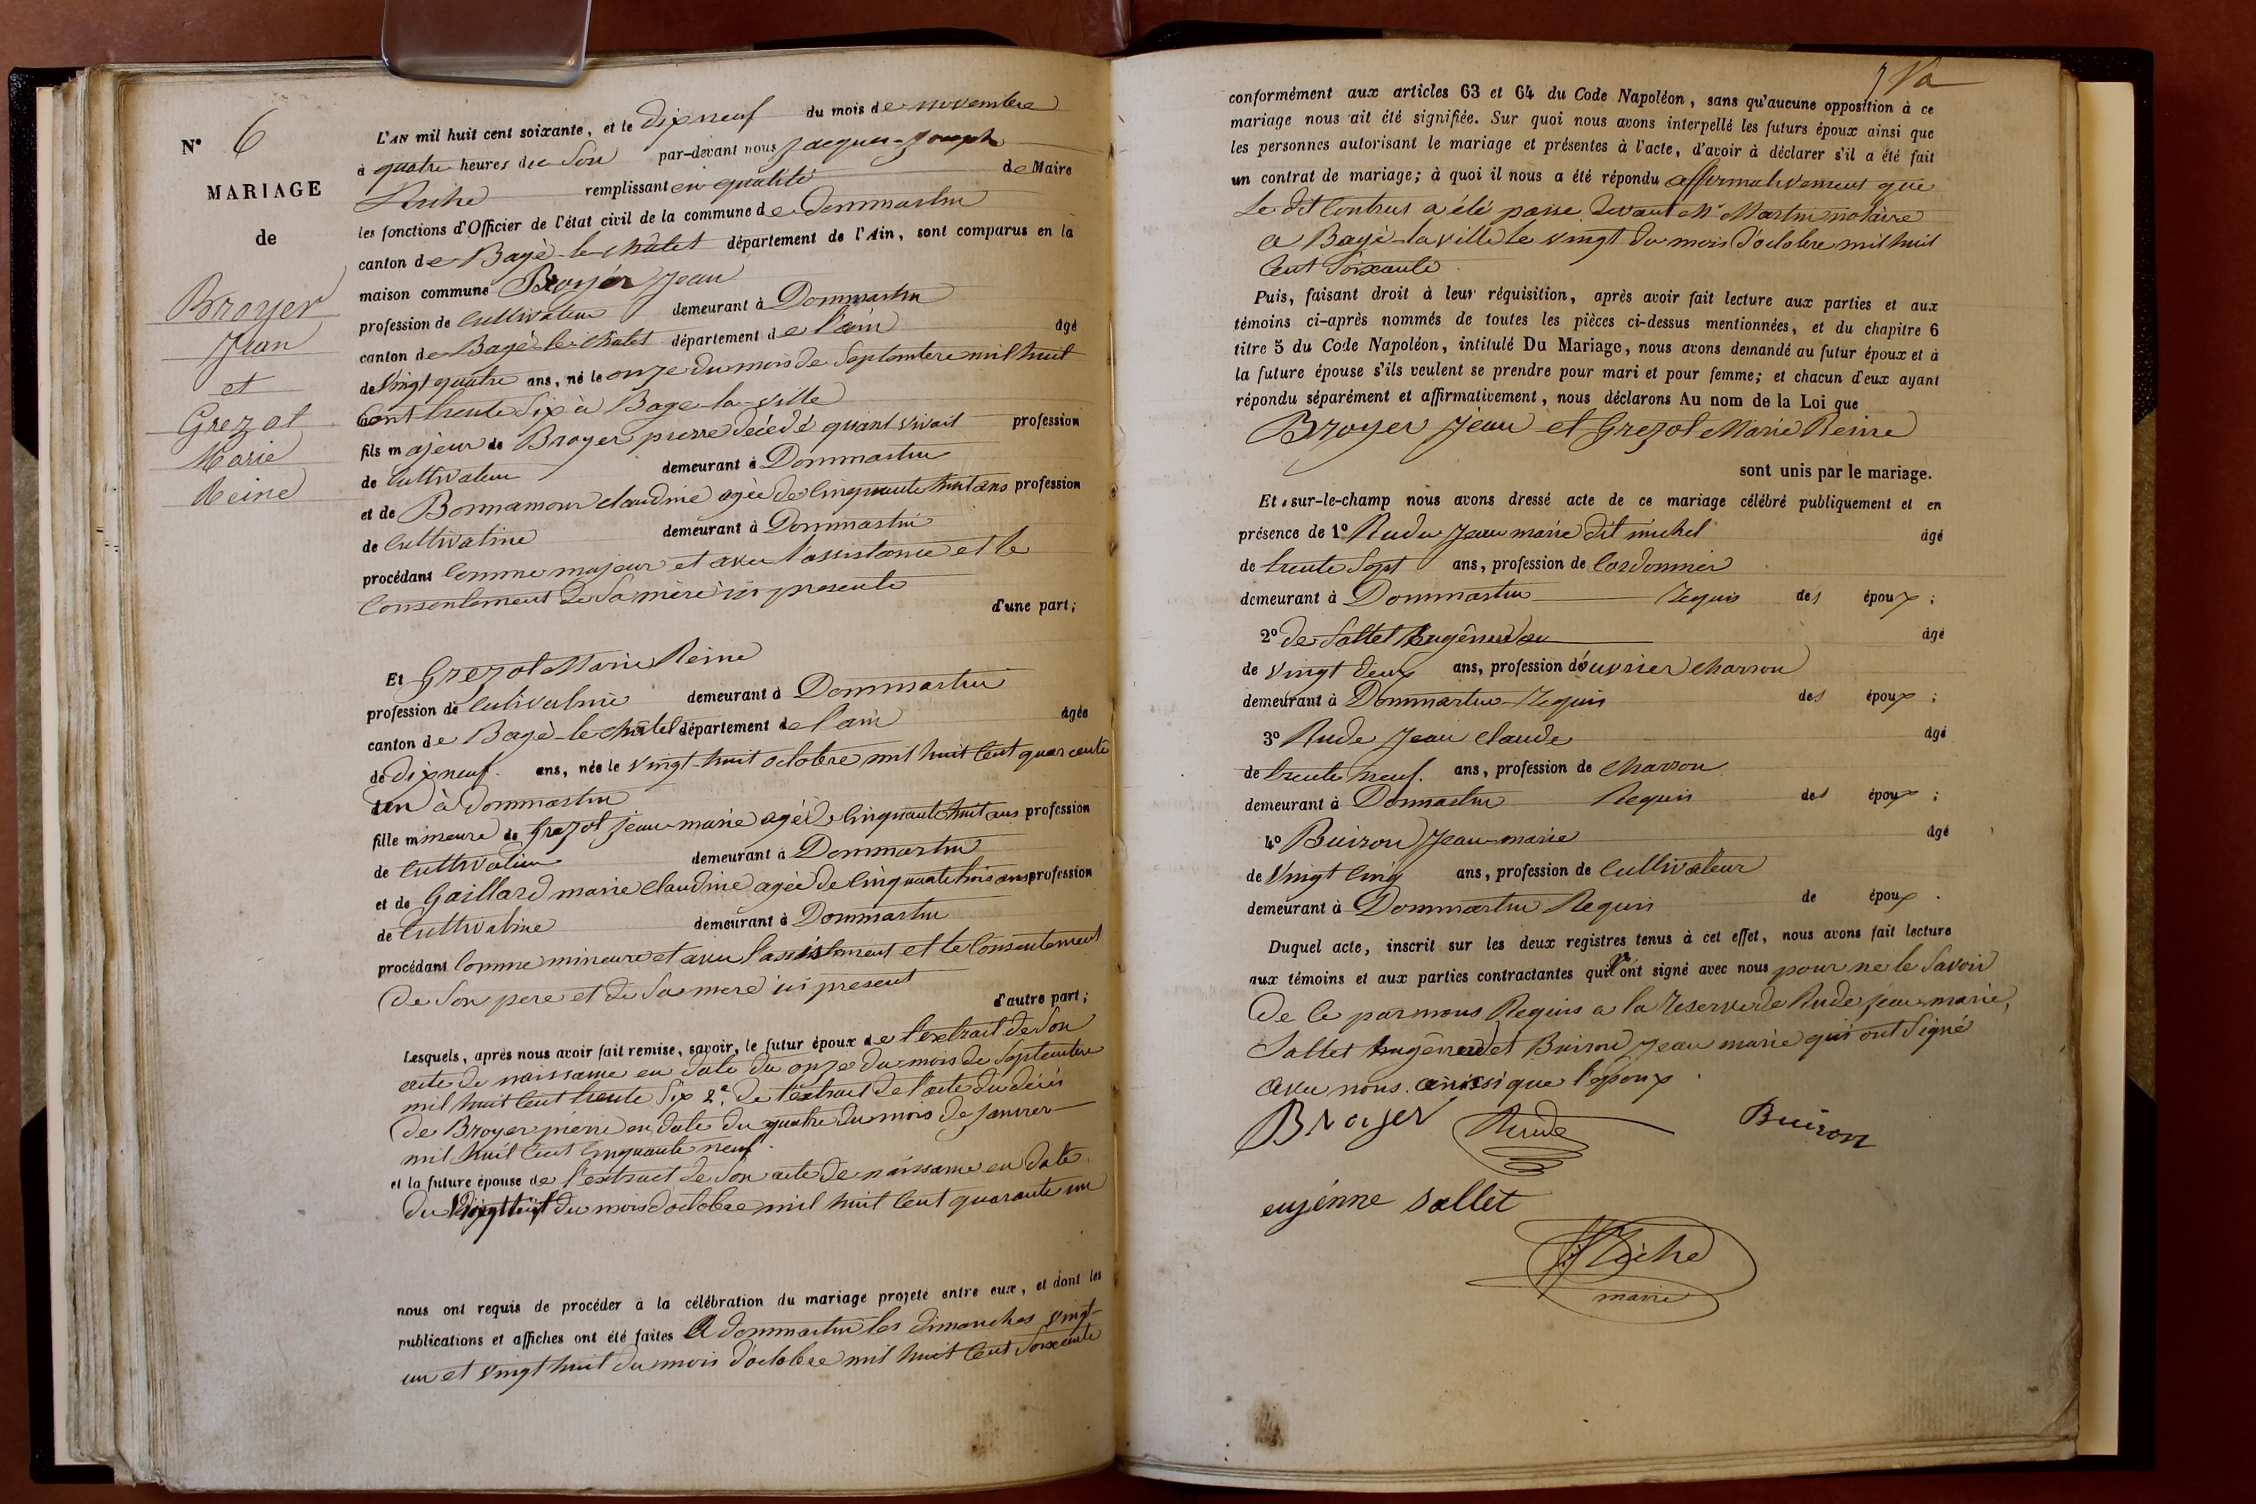 N° 6
MARIAGE
de
Broyer
Jean
et
Grezot
Marie
Reine
L'AN mil huit cent soixante, et le dix neuf du mois de novembre
à quatre heures du Soir par-devant nous Jacques-Joseph
remplissant en qualité de Maire
les fonctions d'Officier de l'état civil de la commune de dommartin
canton de Bagé-le-châtel département de l'Ain, sont comparus en la
maison commune Broyer Jean
profession de Cultivateur demeurant à Dommartin
canton de Bagé-le-chatel département de l'ain âgé
de Vingt quatre ans, né le onze du mois de Septembre mil huit
Cent trente Six à Bagé-la-ville
fils majeur de Broyer pierre décédé quant vivait profession
de Cultivateur demeurant à Dommartin
et de Bonnamour claudine agée de Cinquante huit ans profession
de Cultivatrice demeurant à Dommartin
procédant Comme majeur et avec l'assistance et le
Consentement de Sa mère ici presente
d'une part;
Et Grezot Marie Reine
profession de Cultivatrice demeurant à Dommartin
canton de Bagé-le-châtel département de l'ain âgée
de dix neuf ans, née le vingt-huit octobre mil huit Cent quarante
un à dommartin
fille mineure de Grezot Jean-marie agé de Cinquante huit ans profession
de Cultivateur demeurant à Dommartin
et de Gaillard marie claudine agée de Cinquante trois ans profession
de Cultivatrice demeurant à Dommartin
procédant Comme mineure et avec l'assistement et le Consentement
de Son pere et de Sa mere ici present
d'autre part;
Lesquels, après nous avoir fait remise, savoir, le futur époux de l'extrait de Son
acte de naissance en date du onze du mois de Septembre
mil huit Cent trente Six 2° de l'extrait de l'acte du décès
de Broyer pierre en date du quatre du mois de Janvier
mil huit Cent Cinquante neuf
et la future épouse de l'extrait de Son acte de naissance en date
du Vingt huit du mois d'octobre mil huit Cent quarante un
nous ont requis de procéder à la célébration du mariage projeté entre eux, et dont les
publications et affiches ont été faites A dommartin les dimanches vingt-
un et vingt huit du mois d'octobre mil huit Cent Soixante
conformément aux articles 63 et 64 du Code Napoléon, sans qu'aucune opposition à ce
mariage nous ait été signifiée. Sur quoi nous avons interpellé les futurs époux ainsi que
les personnes autorisant le mariage et présentes à l'acte, d'avoir à déclarer s'il a été fait
un contrat de mariage; à quoi il nous a été répondu affirmativement que
Le dit Contrat a été passé devant Me Martin notaire
a Bagé-la-ville le vingt du mois d'octobre mil huit
Cent Soixante
Puis, faisant droit à leur réquisition, après avoir fait lecture aux parties et aux
témoins ci-après nommés de toutes les pièces ci-dessus mentionnées, et du chapitre 6
titre 5 du Code Napoléon, intitulé Du Mariage, nous avons demandé au futur époux et à
la future épouse s'ils veulent se prendre pour mari et pour femme; et chacun d'eux ayant
répondu séparément et affirmativement, nous déclarons Au nom de la Loi que
Broyer Jean et Grezot Marie Reine
sont unis par le mariage.
Et sur-le-champ nous avons dressé acte de ce mariage célébré publiquement et en
présence de 1° Rude Jean marie dit michel âgé
de trente Sept ans, profession de Cordonnier
demeurant à Dommartin Requis des époux;
2° de Sallet âgé
de vingt deux ans, profession d'ouvrier charron
demeurant à Dommartin Requis des époux;
3° Rude Jean claude âgé
de trente neuf ans, profession de charron
demeurant à Dommartin Requis des époux;
4° Buiron Jean-marie âgé
de Vingt Cinq ans, profession de Cultivateur
demeurant à Dommartin Requis de époux.
Duquel acte, inscrit sur les deux registres tenus à cet effet, nous avons fait lecture
aux témoins et aux parties contractantes qui n'ont signé avec nous pour ne le Savoir
de Ce par nous Requis a la reserve de Rude Jean-marie,
Sallet et Buiron Jean marie qui ont Signé
avec nous ainsi que l'époux.
Broyer Rude Buiron
eujénne Sallet
maire